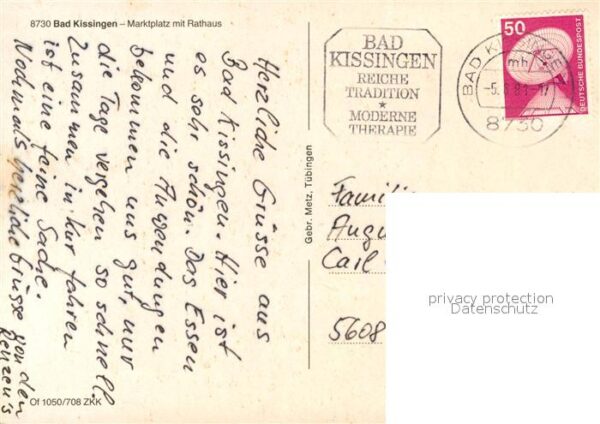 8730 Bad Kissingen – Marktplatz mit Rathaus
Herzliche Grüsse aus
Bad Kissingen. Hier ist
es sehr schön. Das Essen
und die Anwendungen
bekommen uns gut, nur
die Tage vergehen so schnell.
Zusammen in Kur fahren
ist eine feine Sache.
Nochmals herzliche Grüsse von den
Of 1050/708 ZKK
Gebr. Metz, Tübingen
BAD
KISSINGEN
REICHE
TRADITION
★
MODERNE
THERAPIE
BAD KISSINGEN
mh
8730
50
DEUTSCHE BUNDESPOST
Famili
Augu
Carl
5608
privacy protection
Datenschutz